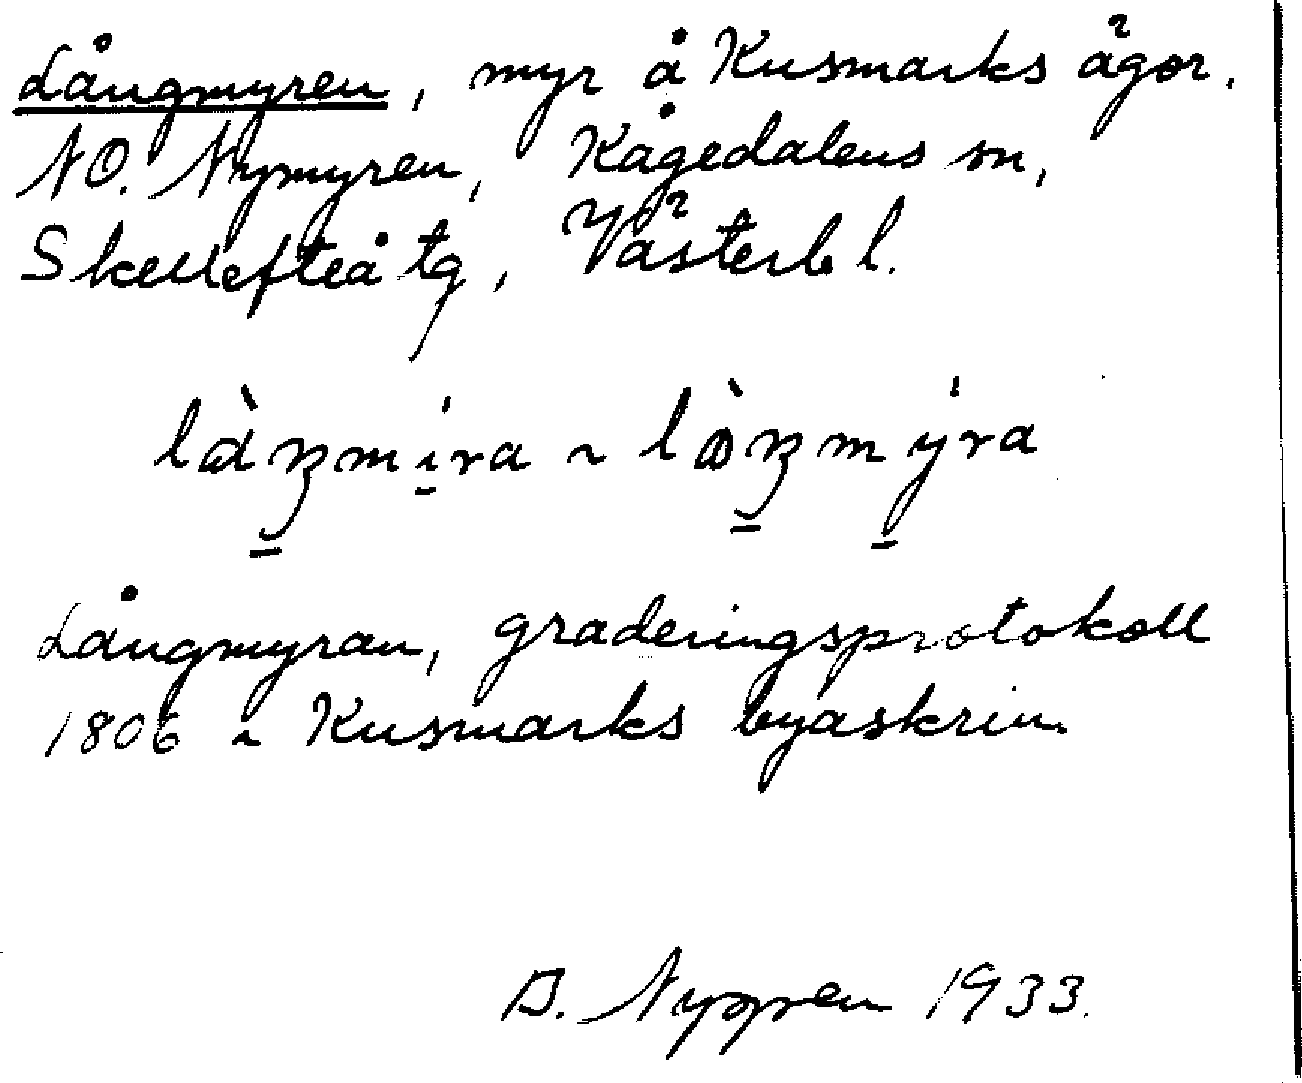 Långmyren, myr å Kusmarks ägor.
NO. Nymyren, Kågedalens sn,
Skellefteå tg, Västerb l.
Långmyran, graderingsprotokoll
1806 ~ Kusmarks byaskrin.
Nygren 1933.